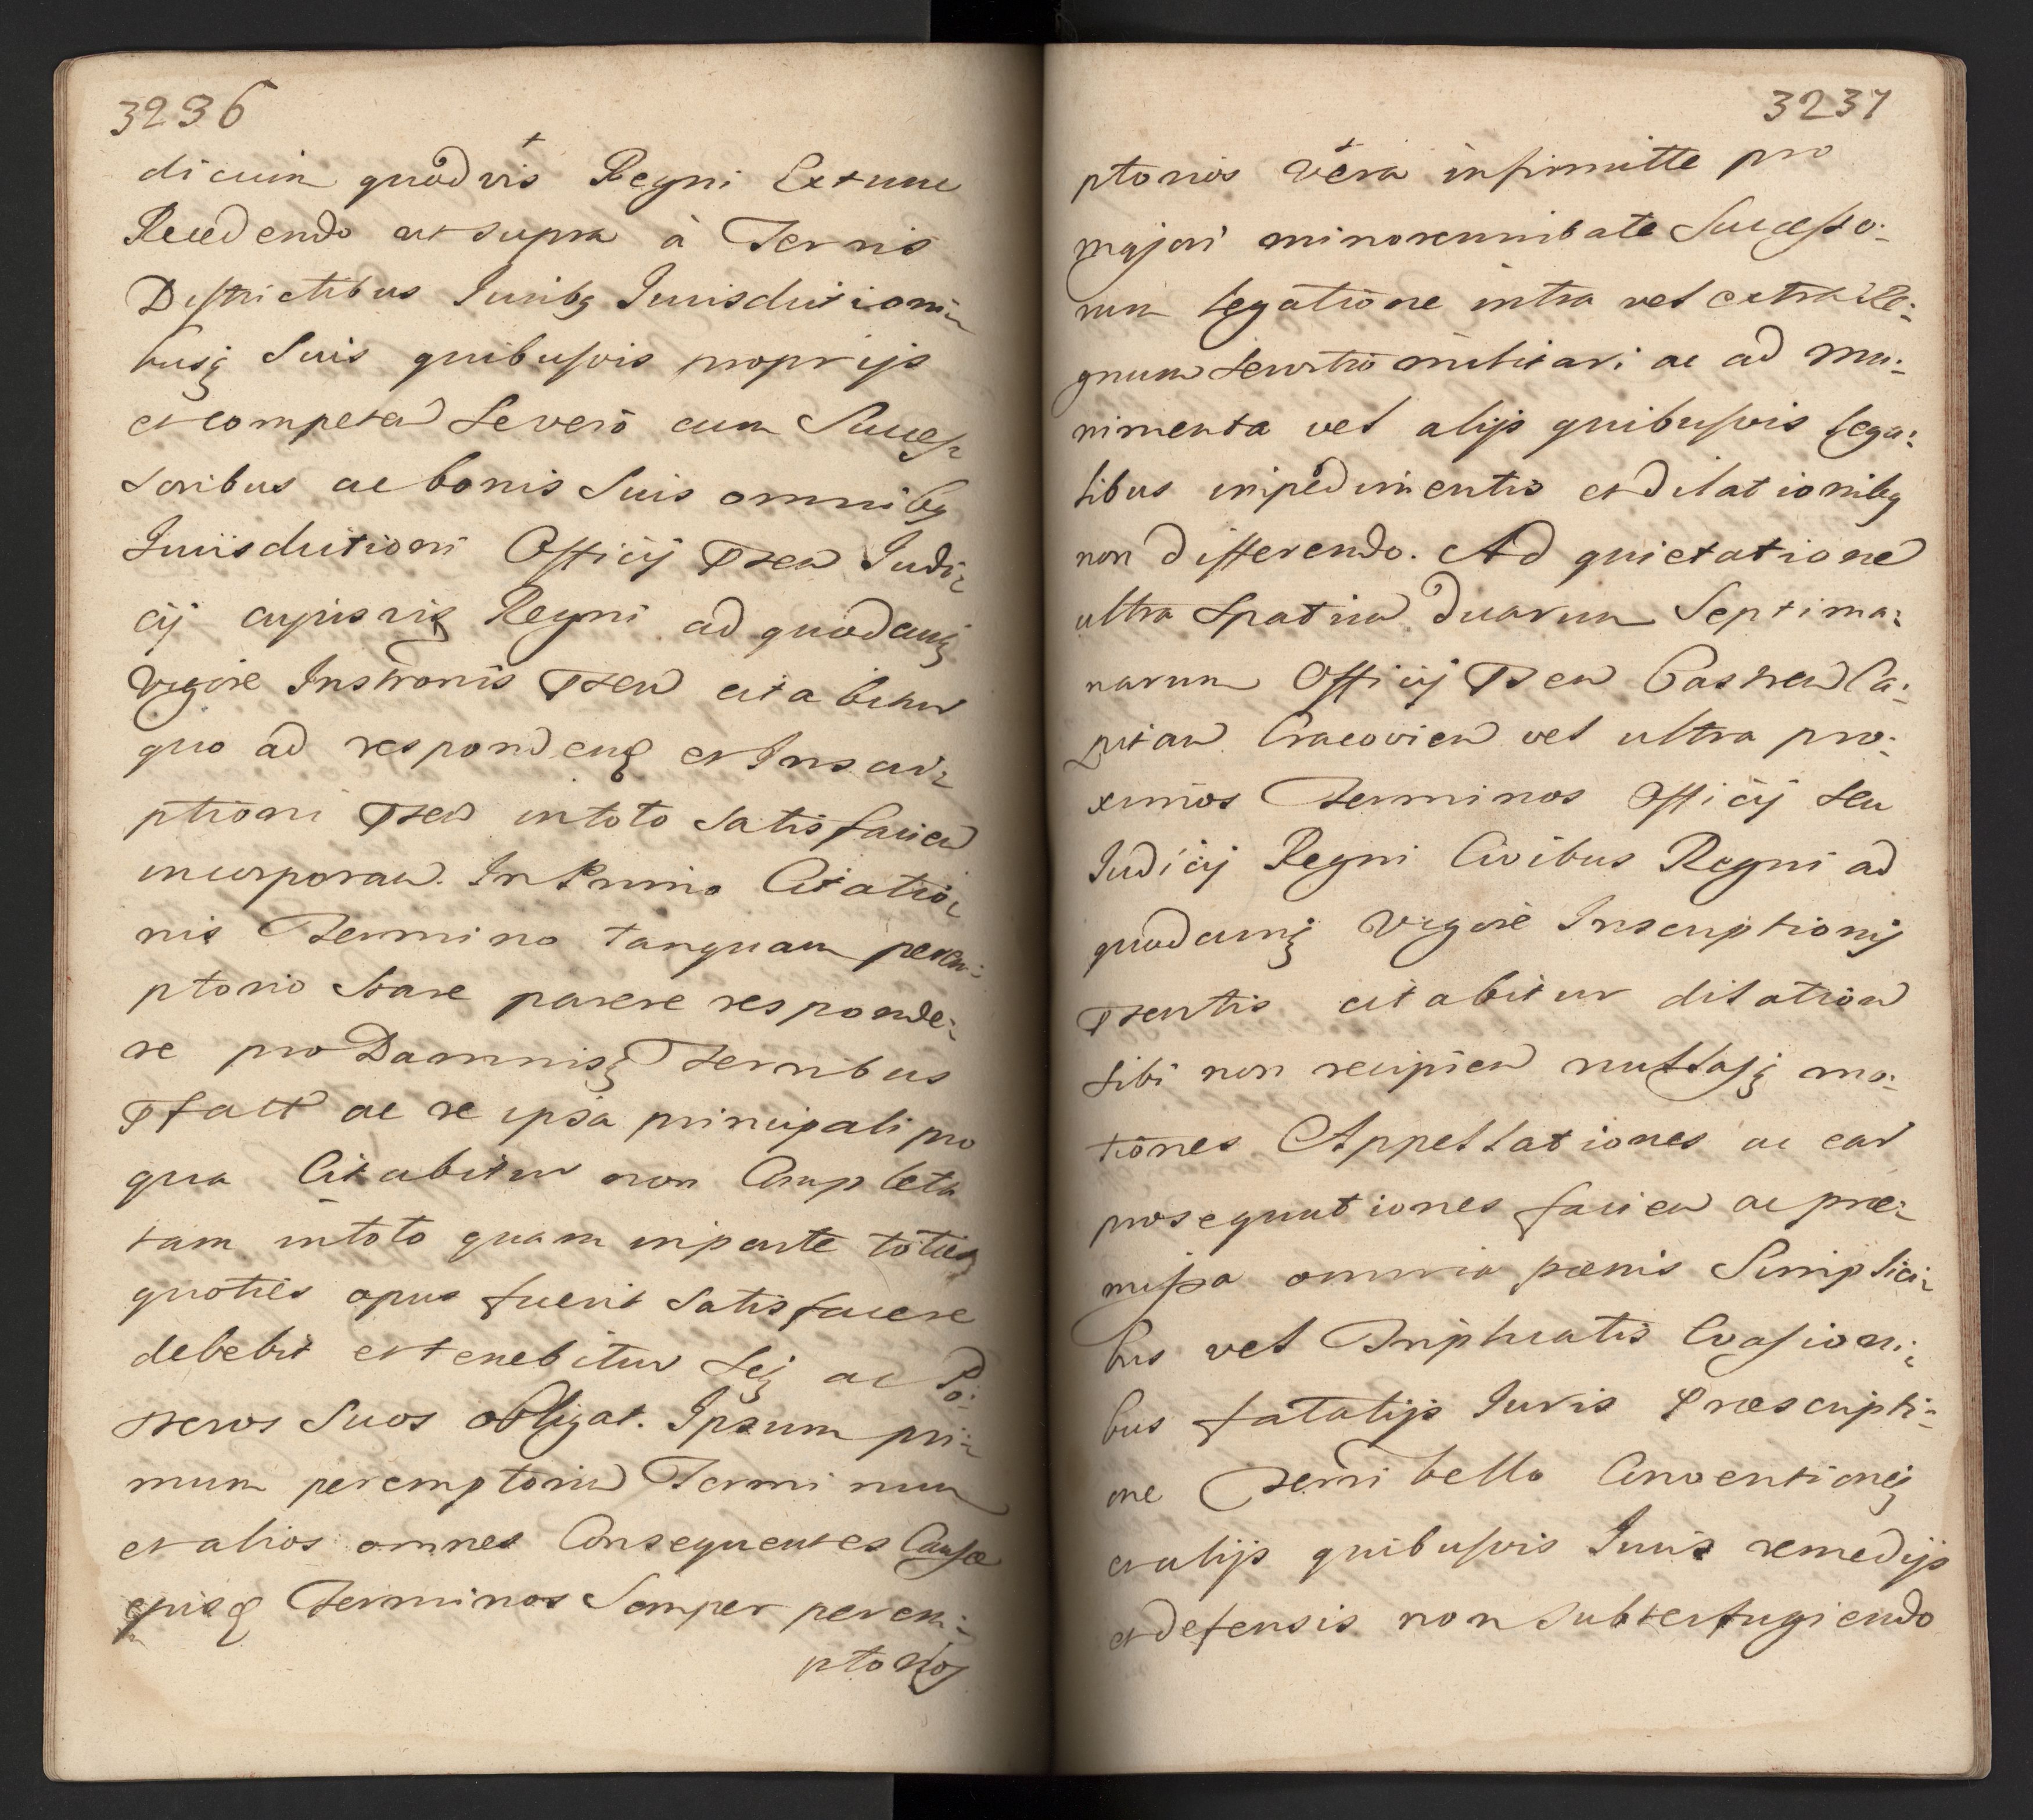 3236
dicium quodvis Regni Extunc
Recedendo ut supra à Terris
Districtibus Juribq Jurisdictioni-
busq Suis quibusvis proprijs
et competen Se vero cum Succes-
soribus ac bonis Suis omnibq
Jurisdictioni Officij Psen Judi-
cij cujusvis Regni ad quodcunq
vigore Inscronis Psen citabitur
quo ad respondendq et Inscri-
ptioni Psen in toto Satisfacien
incorporan. In Primo Citatio-
nis Termino tanquam perem-
ptorio Stare parere responde-
re pro Damnisq Terribus
Pfatt ac re ipsa principali pro
qua Citabitur non Completa
tam in toto quam in parte toties
quoties opus fuerit Satisfacere
debebit et tenebitur Seq ac Po-
steros Suos obligat. Ipsum pri-
mum peremptoriu Terminum
et alios omnes Consequentes Causæ
ejusq Terminos Semper perem-
ptorios
3237
ptorios vera infirmitte pro
majori minorennitate Successo-
rum Legatione intra vel extra Re-
gnum Servitio militari ac ad Mu-
nimenta vel alijs quibusvis Lega-
libus impedimentis et dilationibq
non differendo. Ad quietatione
ultra Spatiu duarum Septima-
narum Officij Psen Castren Ca-
pitan Cracovien vel ultra pro-
ximos Terminos Officij seu
Judicij Regni Civibus Regni ad
quodcunq vigore Inscriptionis
Psentis citabitur dilation
Sibi non recipien nullasq mo-
tiones Appellationes ac ear
prosequutiones facien ac præ-
missa omnia pænis Simplici-
bus vel Triplicatis Evasioni-
bus fatalijs Juris Præscripti-
one Terri bello Conventioneq
et alijs quibusvis Juris remedijs
et defensis non Subterfugiendo